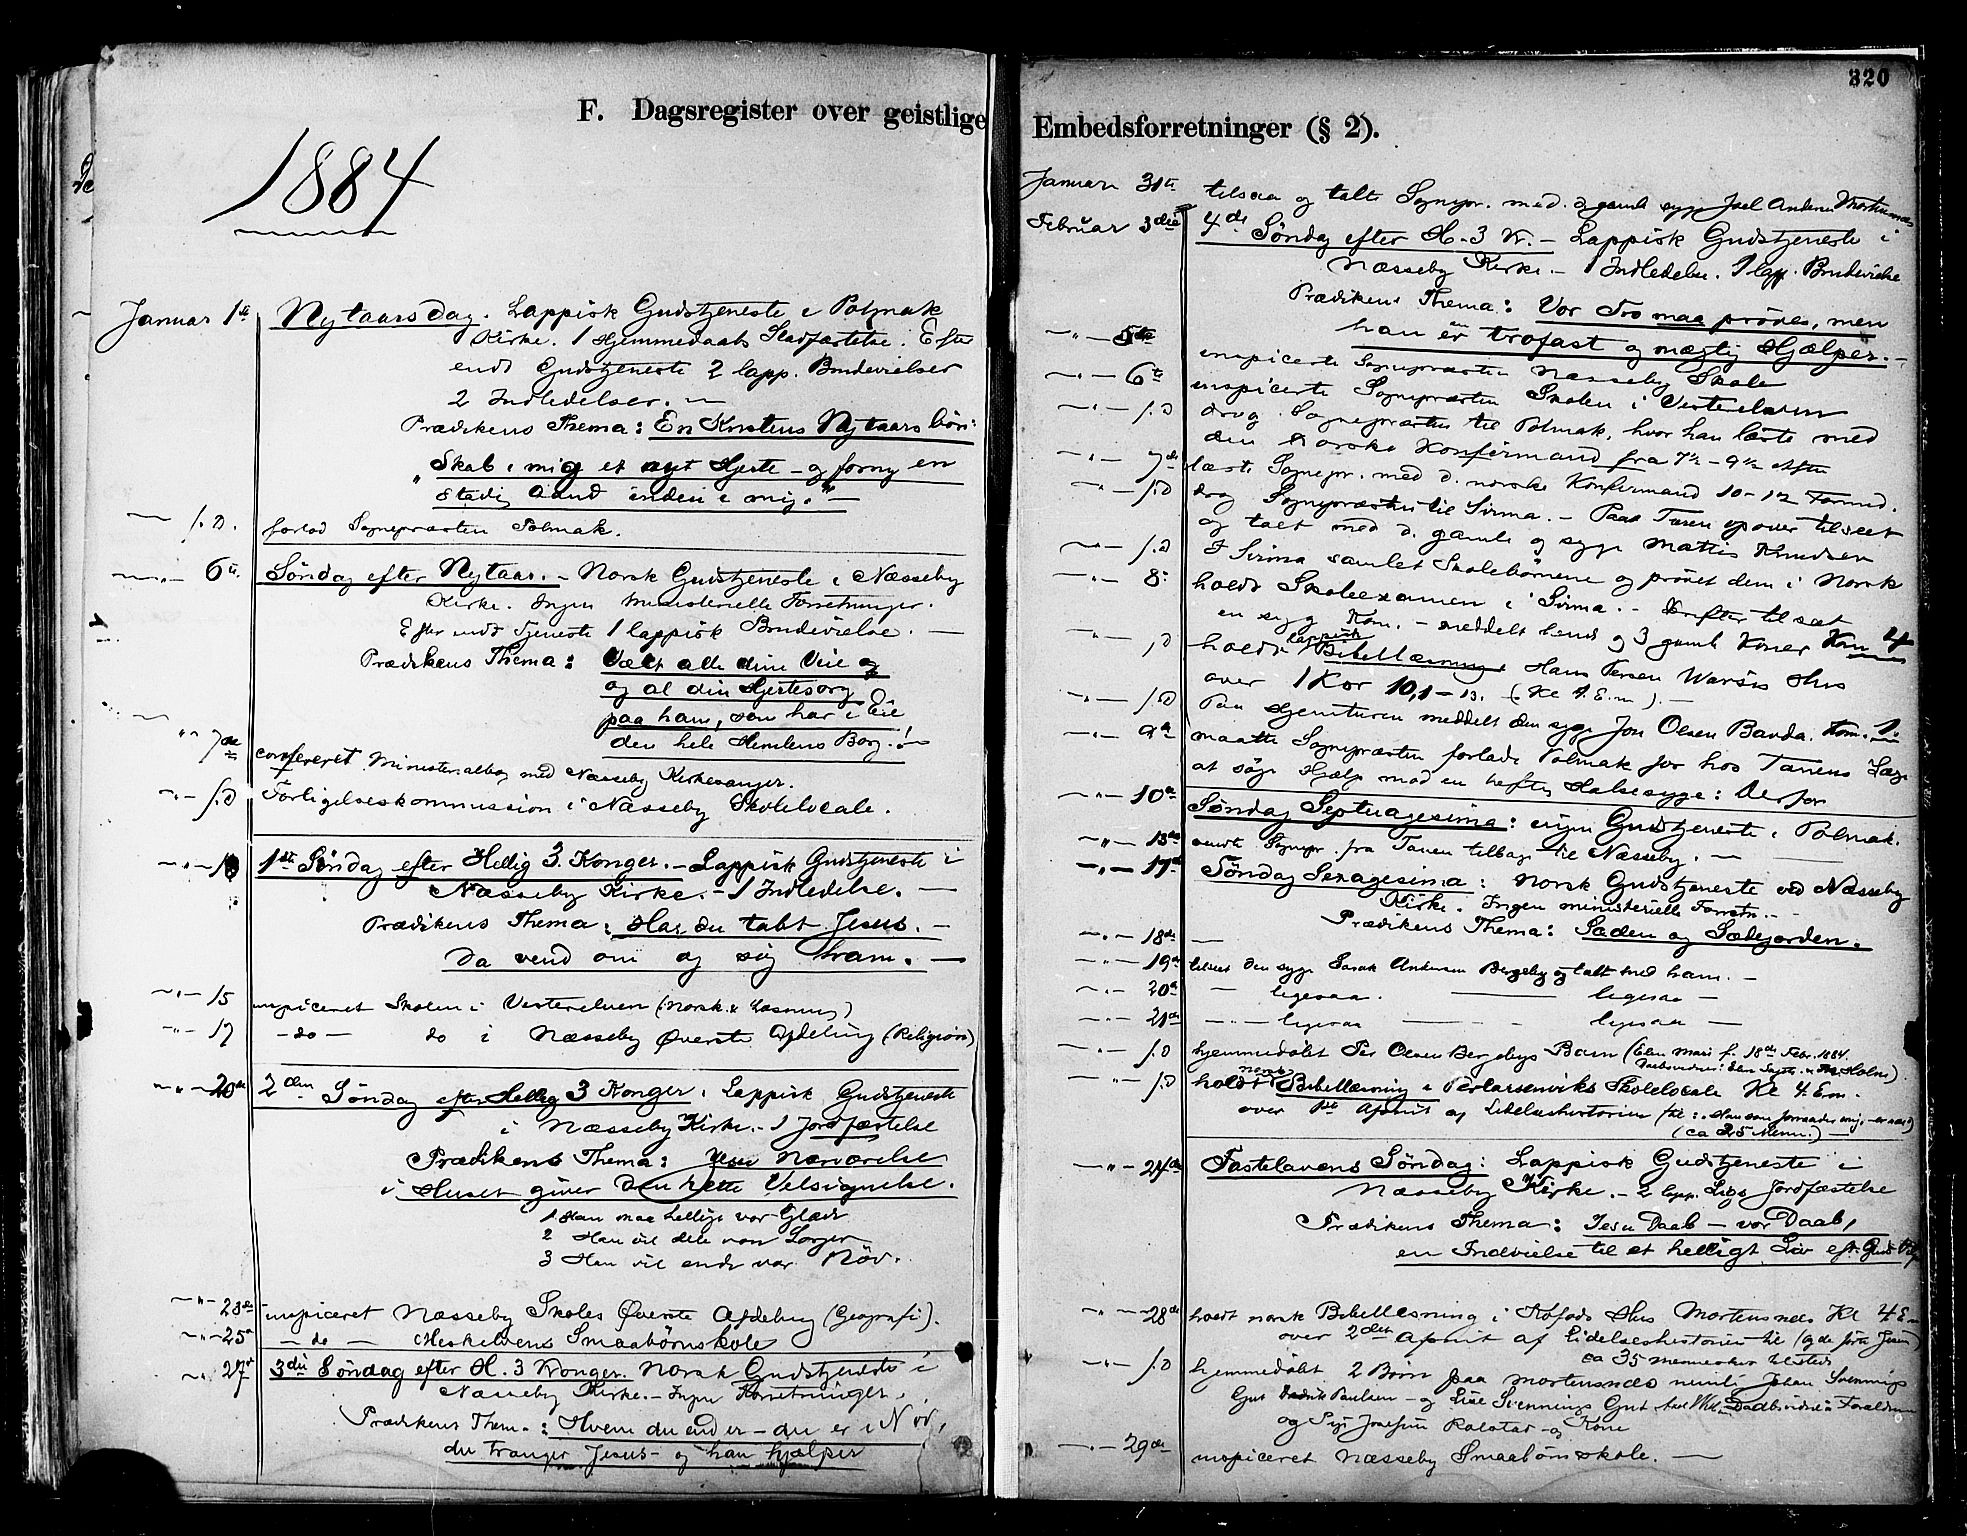 F. Dagsregister over geistlige
1884
Januar 1ste Nytaarsdag. Lappisk Gudstjeneste i Polmak
Kirke. 1 Hjemmedaabs Stadfæstelse. Efter
endt Gudstjeneste 2 lapp. Brudevielser
2 Indledelser. —
Prædikens Thema: En Kristens Nytaarsbön:
"Skab i mig et nyt Hjerte – og forny en
stadig Aand inden i mig." —
— s.D. forlod Sognepræsten Polmak.
—"— 6te Søndag efter Nytaar. – Norsk Gudstjeneste i Næsseby
Kirke. Ingen Ministerielle Forretninger.
Efter endt Tjeneste 1 lappisk Brudevielse. —
Prædikens Thema: Vælt alle dine Veie og
og al din Hjertesorg
paa ham, som har i Eie
den hele Himlens Borg! —
"— 7de confereret Ministerialbog med Næsseby Kirkesanger.
—"— s.D Forligelseskommission i Næsseby Skolelocale.
—"— 13 1ste Søndag efter Hellig 3 Konger. – Lappisk Gudstjeneste i
Næsseby Kirke. – 1 Indledelse. —
Prædikens Thema: Har du tabt Jesus. —
Da vend om og søg ham. —
—"— 15 inspiceret Skolen i Vesterelven (Norsk & Læsning)
—"— 17 – do – do i Næsseby Øverste Afdeling (Religion)
—"— 20de 2den Søndag efter Hellig 3 Konger. Lappisk Gudstjeneste
i Næsseby Kirke. – 1 Jordfæstelse
Prædikens Thema: Jesu Nærværelse
i Huset giver den rette Velsignelse.
1 Han maa hellige vor Glæde
2 Han vil dele vore Sorger
3 Han vil ende vor Nöd.
—"— 23de inspiceret Næsseby Skoles Øverste Afdeling (Geografi).
—"— 25de – do – Meskelvens Smaabörnskole
—"— 27de 3die Søndag efter H. 3 Konger. Norsk Gudstjeneste i
Næsseby Kirke. – Ingen Forretninger.
Prædikens Thema: Hvem du end er – du er i Nöd,
du trænger Jesus – og han hjælper
320
Embedsforretninger (§ 2).
Januar 31te tilsaa og talte Sognepr. med d. gamle syge Joel Andersen Mortensnes
Februar 3die 4de Søndag efter H. 3 K. – Lappisk Gudstjeneste i
Næsseby Kirke. – 1 Indledelse. 1 lapp. Brudevielse
Prædikens Thema: Vor Tro maa prøves, men
han er en trofast og mægtig Hjælper. —
—"— 5te inspicerte Sognepræsten Næsseby Skole
—"— 6te inspicerte Sognepræsten Skolen i Vesterelven
—"— s.D drog Sognepræsten til Polmak, hvor han læste med
den norske Konfirmand fra 7½ – 9½ Aften
—"— 7de læste Sognepr. med d. norske Konfirmand 10–12 Formd.
—"— s.D drog Sognepræsten til Sirma. – Paa Turen opover tilseet
og talt med d. gamle og syge Mattis Knudsen
—"— s.D I Sirma samlet Skolebörnene og prøvet dem i Norsk
—"— 8: holdt Skoleexamen i Sirma. – Derefter tilseet
en syg Kone. – meddelt hende og 3 gamle Koner Kom 4
—"— s.D holdt lappisk Bibellæsning i Hans Persen Warsis Hus
over 1 Kor 10,1–13. (Kl 7. E.m). —
—"— s.D Paa Hjemturen meddelt den syge Jon Olsen Banda. Kom. 1.
—"— 9de maatte Sognepræsten forlade Polmak for hos Tanens Læge
at søge Hjælp mod en heftig Halssyge: Derfor
—"— 10de Søndag Septuagesima: ingen Gudstjeneste i Polmak.
—"— 13de vendte Sognepr. fra Tanen tilbage til Næsseby. —
—"— 17de Søndag Sexagesima: Norsk Gudstjeneste ved Næsseby
Kirke. Ingen ministerielle Forretn. –
Prædikens Thema: Sæden og Sædejorden.
—"— 18de —
—"— 19de tilseet den syge Isak Andersen Bergeby og talt med ham. –
—"— 20de — ligesaa. — ligesaa —
—"— 21de —"— ligesaa — ligesaa —
—"— s.D hjemmedøbt Per Olsen Bergebys Barn (Elen Mari f. 18de Febr. 1884.
—"— s.D holdt norsk Bibellæsning i Perlarsenviks Skolelocale Kl 4. Em.
over 1ste Afsnit af Lidelseshistorien
(ca 25 Menn.) —
—"— 24de Fastelavens Søndag: Lappisk Gudstjeneste i
Næsseby Kirke. – 2 lapp. Ligs Jordfæstelse
Prædikens Thema: Jesu Daab – vor Daab,
en Indvielse til et helligt Liv eft. Guds
—"— 28de holdt norsk Bibellæsning i Kofods Hus Mortensnes Kl 4 Em
over 2det Afsnit af Lidelseshistorien til (og de førte Jesum)
ca 35 Mennesker tilstede
—"— s.D hjemmedøbt 2 Börn paa Mortensnes nemlig Johan Svennings
Gut Fredrik Paulsen – og Lise Svennings Gut
og Pige Josefine Rolstad og Kone
—"— 29de inspiceret Næsseby Smaabörnskole. —